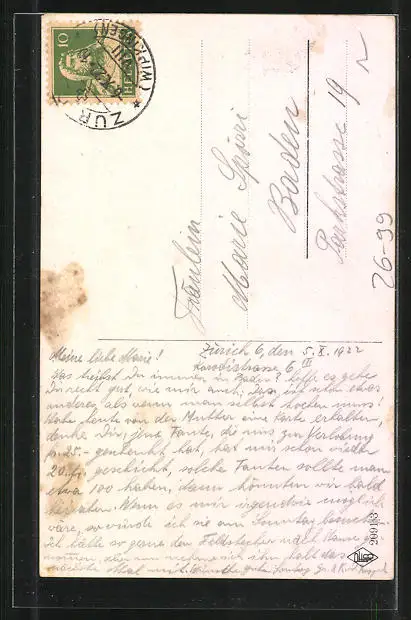 10
HELVETIA
ZÜR
Fräulein
Marie Spöri
Baden
Parkstrasse 19
26-99
Zürich 6, den 5. X. 1922
Meine liebe Marie!
Was treibst Du immer in Baden? Hoffe es gehe
Dir recht gut, wie mir auch, das ist schon etwas
anderes, als wenn man selbst kochen muss!
Habe heute von der Mutter eine Karte erhalten,
denke Dir, jene Tante, die uns zur Verlobung
Fr. 25.- geschenkt hat, hat mir schon wieder
20.- Fr. geschickt, solche Tanten sollte man
etwa 100 haben, dann könnten wir bald
heiraten. Wenn es mir irgendwie möglich
wäre, so würde ich Sonntag
ich hätte so gerne den Feldstecher nach Hause
nächste Mal mit
209113